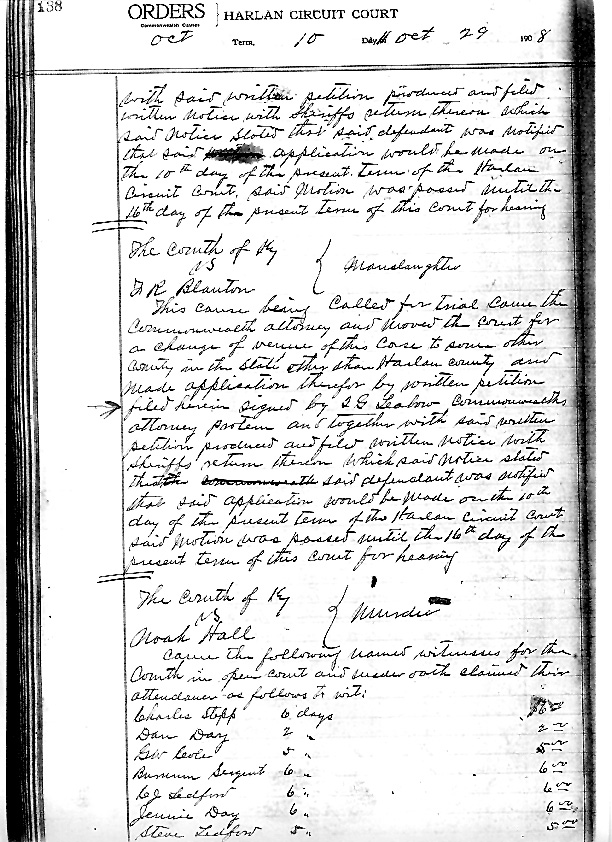 138
ORDERS } HARLAN CIRCUIT COURT
Commonwealth Cases
Oct Term, 10 Day, Oct 29 1908
with said written petition produced and filed
written notice with Sheriffs return thereon which
said Notice stated that said defendant was notified
that said application would be made on
the 10th day of the present term of the Harlan
Circuit Court, said Motion was passed until the
16th day of the present term of this Court for hearing
The Comth of Ky
vs } Manslaughter
F R Blanton
This cause being Called for trial came the
Commonwealth attorney and moved the court for
a change of venue of this Case to some other
County in the State other than Harlan county and
made application therefor by written petition
filed herein signed by J G Leabow Commonwealths
attorney protem and together with said written
petition produced and filed written notice with
Sheriffs return thereon which said Notice stated
that the commonwealth said defendant was notified
that said application would be made on the 10th
day of the present term of the Harlan Circuit Court
said Motion was passed until the 16th day of the
present term of this Court for hearing
The Comth of Ky
vs } Murder
Noah Hall
Came the following named witnesses for the
Comth in open court and under oath claimed their
attendance as follows to wit:
Charles Stepp 6 days 6 00
Dan Day 2 " 2 00
GW Cole 5 " 5 00
Sergent 6 " 6 00
Ledford 6 " 6 00
Jennie Day 6 " 6 00
Steve Ledford 5 " 5 00